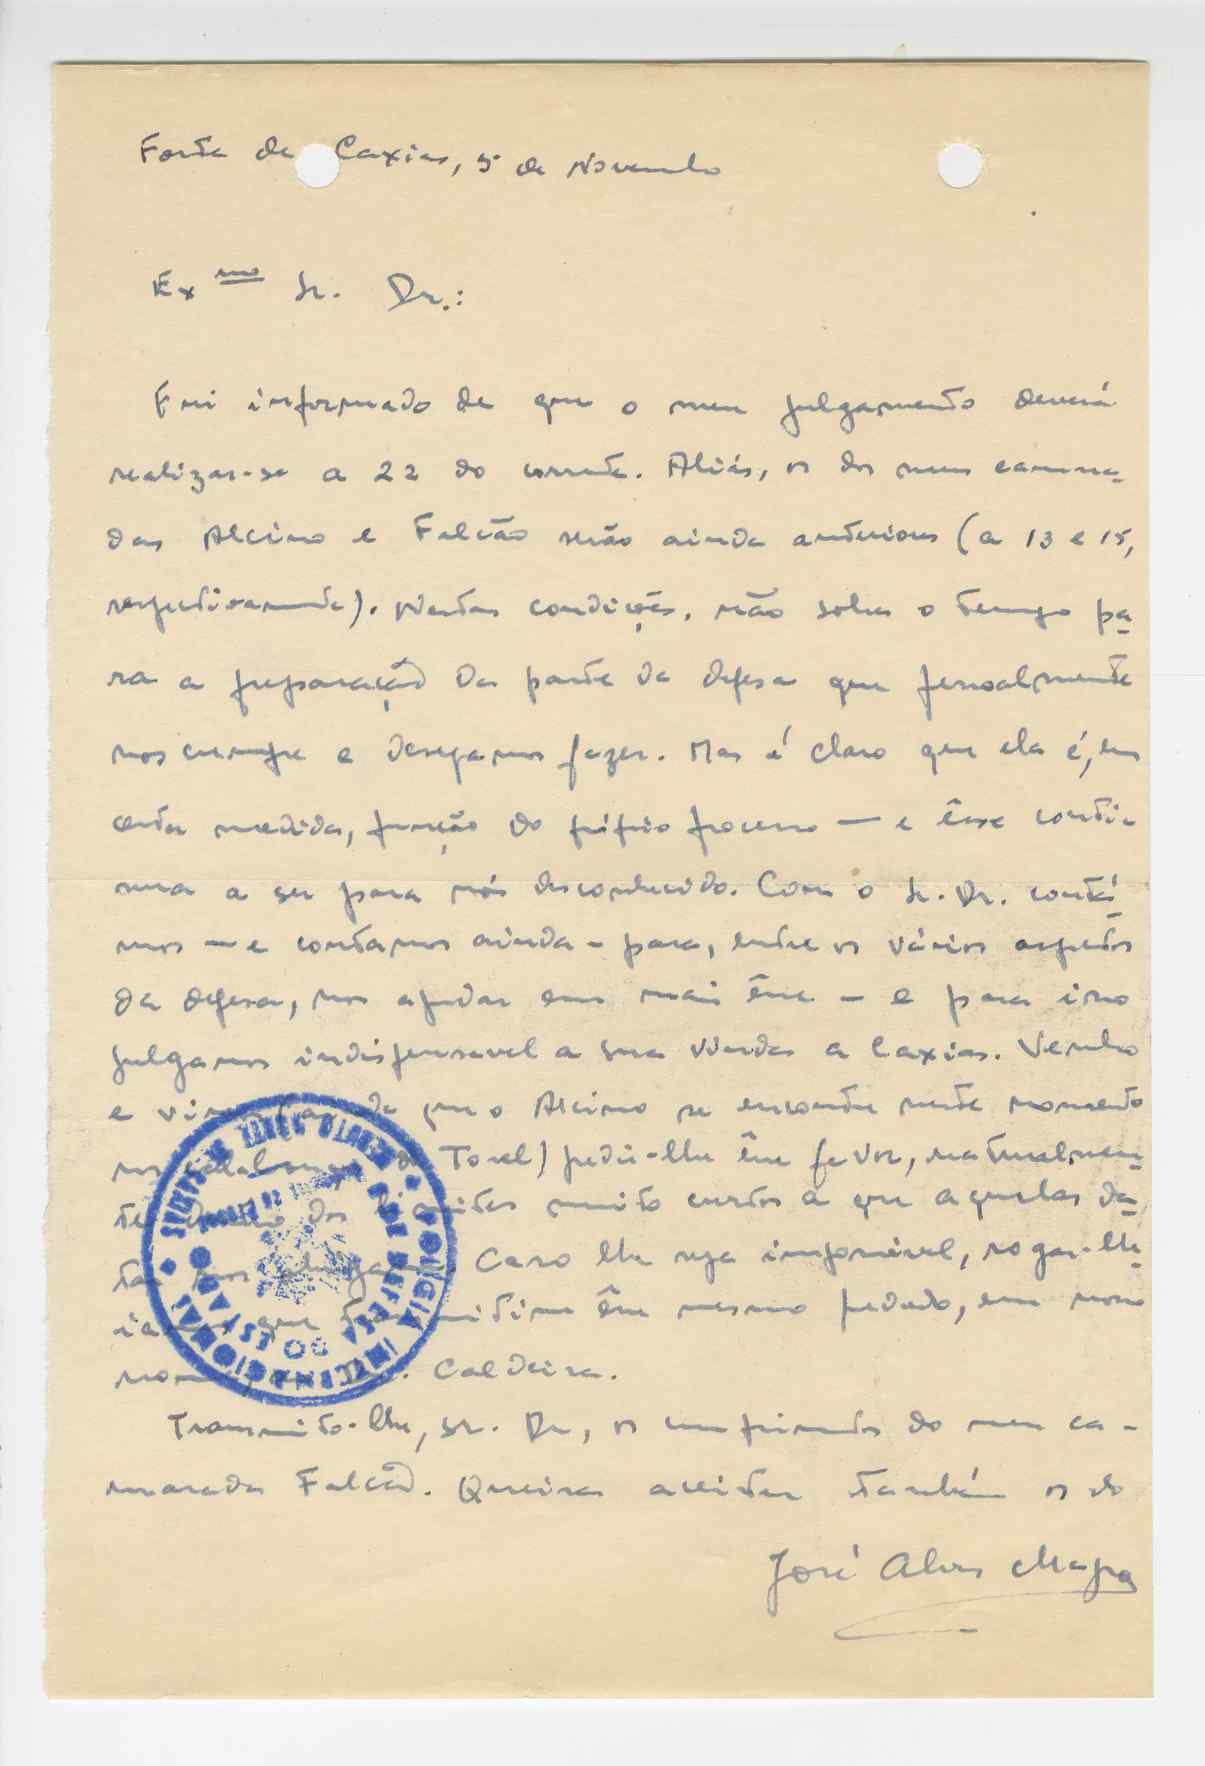 Forte de Caxias, 5 de Novembro
Exmo Sr. Dr.:
Fui informado de que o meu julgamento deverá
realizar-se a 22 do corrente. Aliás, os dos meus camara-
das Alcino e Falcão serão ainda anteriores (a 13 e 15,
respectivamente). Nestas condições, não sobra o tempo pa-
ra a preparação da parte da defesa que pessoalmente
nos cumpre e desejamos fazer. Mas é claro que ela é, em
certa medida, função do próprio processo — e êsse conti-
nua a ser para nós desconhecido. Com o Sr. Dr. contá-
mos — e contamos ainda - para, entre os vários aspectos
da defesa, nos ajudar em mais êsse — e para isso
julgamos indispensavel a sua vinda a Caxias. Venho
e que o Alcino se encontra neste momento
Torel) pedir-lhe êsse favor, naturalmen-
te dos limites muito curtos a que aquelas da-
tas nos Caso lhe seja impossível, rogar-lhe-
ia que êsse mesmo pedido, em nosso
Caldeira.
Transmito-lhe, Sr. Dr, os cumprimentos do meu ca-
marada Falcão. Queira aceitar também os do
José Alves
POLICIA INTERNACIONAL E DE DEFESA DO ESTADO